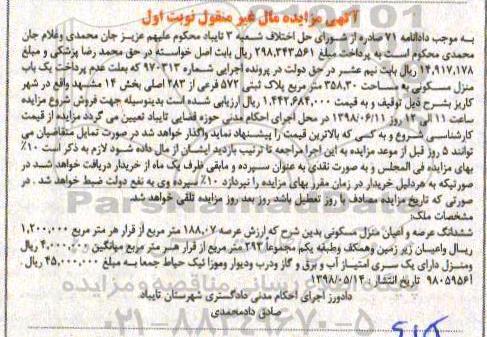 آگهی مزایده مال غیر منقول نوبت اول
به موجب دادنامه ۷۱ صادره از شورای حل اختلاف شعبه ۳ تایباد محکوم علیهم عزیز جان محمدی وغلام جان
محمدی محکوم است به پرداخت مبلغ ۲۹۸,۳۴۳,۵۶۱ ریال بابت اصل خواسته در حق محمد رضا پزشکی و مبلغ
۱۴,۹۱۷,۱۷۸ ریال بابت نیم عشر در حق دولت در پرونده اجرایی شماره ۹۷۰۳۱۳ که بعلت عدم پرداخت یک باب
منزل مسکونی به مساحت ۳۵۸,۳۰ متر مربع پلاک ثبتی ۵۷۲ فرعی از ۲۸۳ اصلی بخش ۱۴ مشهد واقع در شهر
کاریز بشرح ذیل توقیف و به قیمت ۱,۴۴۲,۶۸۴,۰۰۰ ریال ارزیابی شده است بدینوسیله جهت فروش شروع مزایده
ساعت ۱۱ الی ۱۲ روز ۱۳۹۸/۰۶/۱۱ در محل اجرای احکام مدنی حوزه قضایی تایباد تعیین می گردد مزایده از قیمت
کارشناسی شروع و به کسی که بالاترین قیمت را پیشنهاد نماید واگذار خواهد شد در صورت تمایل متقاضیان می
توانند ۵ روز قبل از موعد مزایده به این اجرا مراجعه تا ترتیب بازدید ایشان از مال داده شود لازم به ذکر است ۱۰٪
بهای مزایده فی المجلس و به صورت نقدی به عنوان سپرده و مابقی ظرف یک ماه از خریدار دریافت خواهد شد در
صورتیکه به هردلیل خریدار در زمان مقرر بهای مزایده را نپردازد ۱۰٪ سپرده وی به نفع دولت ضبط خواهد شد . در
صورتی که تاریخ مزایده مصادف با روز تعطیل باشد روز بعد روز مزایده تلقی خواهد شد.
مشخصات ملک:
ششدانگ عرصه و اعیان منزل مسکونی بدین شرح که ارزش عرصه ۱۸۸,۰۷ متر مربع از قرار هر متر مربع ۱,۲۰۰,۰۰۰
ریال واعیان زیر زمین وهمکف وطبقه یکم مجموعاً ۲۹۳ متر مربع از قرار هر متر مربع میانگین ۴,۰۰۰,۰۰۰ ریال
ومنزل دارای یک سری امتیاز آب و برق و گاز ودرب ودیوار وموزائیک حیاط جمعا به مبلغ ۴۵,۰۰۰,۰۰۰ ریال .
۹۸۰۵۹۵۶۱ تاریخ انتشار: ۱۳۹۸/۰۵/۱۴
دادورز اجرای احکام مدنی دادگستری شهرستان تایباد
صادق دادمحمدی
ParsNamadData
۰۲۱-۸۸۳۴۹۶۷۰-۵